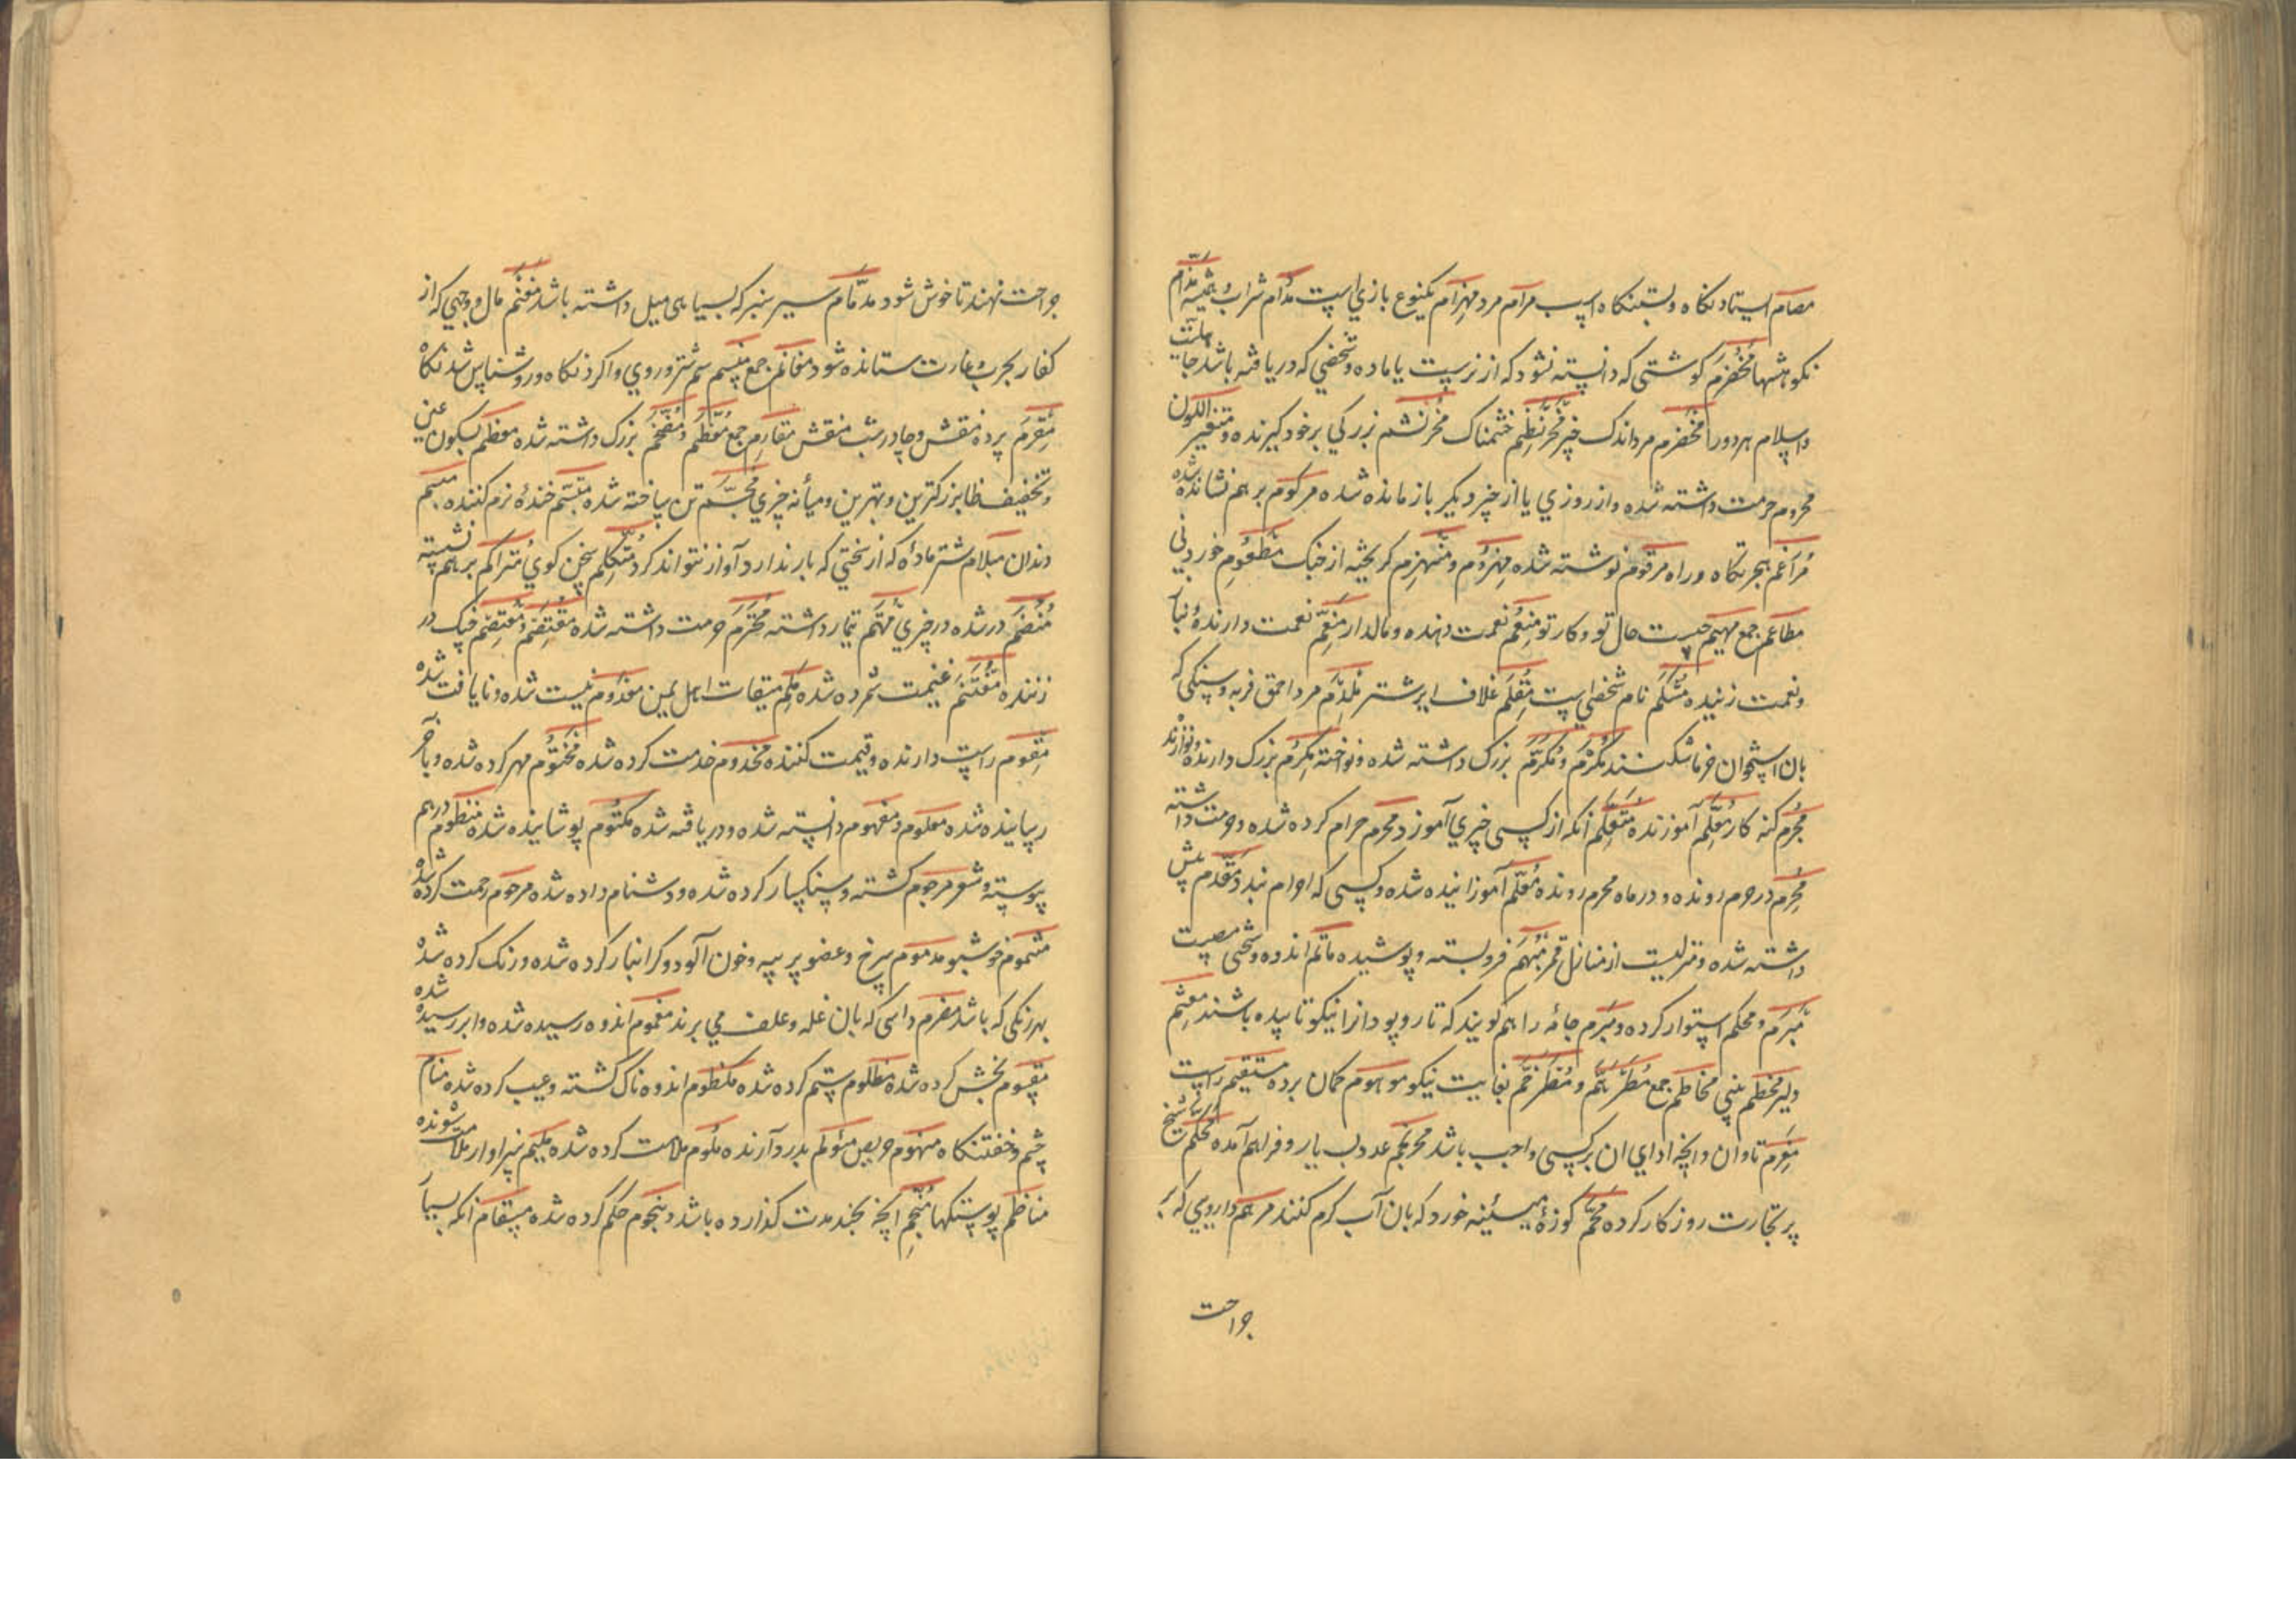 مصام ایستادنکاه وبستنکاه اسپ مرام مرد مهزام یکنوع بازي است مدام شراب همیشه مذام
نکوهشها مخضرم کوشتی که دانسته نشود که از نرست یا ماده وشخصي که دریافته باشد جاهلیت
واسلام هردورا مخضرم مرد اندک خیر مخرنطم خشمناک مخرنشم بزرکي برخود کیرنده ومتغیر اللون
محروم حرمت داشته شده واز روزي یا از خیر دیکر بازمانده شده مرکوم برهم نشانده شده
مراغم هجرتکاه وراه مرقوم نوشته شده مهزوم ومنهزم کریخته از جنک مطعوم خوردني
مطاعم جمع مهیم چیست حال تو وکار تو منعم نعمت دهنده ومالدار منعم نعمت دارنده
ونعمت زنیده مشکم نام شخصي است مقلم غلاف ایر شتر ملدم مرد احمق فربه وسنکي که
بان استخوان خرما شکنند مکرم ومکرم بزرک داشته شده ونواخته مکرم بزرک دارنده ونوازنده
مجرم کنه کار معلم آموزنده متعلم انکه از کسي چیزي آموزد محرم حرام کرده شده وحرمت داشته
محرم در حرم رونده ودر ماه محرم رونده معلم آموزانیده شده وکسي که احرام بندد مقدم پیش
داشته شده ومنزلیست از منازل قمر مبهم فروبسته وپوشیده ماتم اندوه وسختی مصیبت
مبرم ومحکم استوار کرده ومبرم جامه را هم کویند که تار وپود انرا نیکو تابیده باشند مغشم
دلیر مخطم بیني مخاطم جمع مطرهم ومطرخم بغایت نیکو موهوم کمان برده مستقیم راست
مغرم تاوان وانچه اداي ان برکسي واجب باشد محرنجم عدد بسیار وفراهم آمده محکم شیخ
پر تجارت روزکار کرده محم کوزه مسینه خورد که بان آب کرم کنند مرهم داروي که بر
جراحت
جراحت نهند تا خوش شود مدمام سیر سنبر که بسیاهی میل داشته باشد مغنم مال وچیي که از
کفار بحرب وغارت ستانده شود مغانم جمع منسم سم شتر وروي واکردنکاه وروشناس شدنکاه
مقرم پرده منقش وچادر شب منقش مقارم جمع معظم ومفخم بزرک داشته شده معظم بسکون عین
وتخفیف ظا بزرکترین وبهترین ومیانه چیزي مجسم تن ساخته شده متبسم خنده نرم کننده مبسم
دندان مبلام شتر ماده که از سختي که بار ندارد آواز نتواند کرد متکلم سخن کوي متراکم برهم نشسته
منضم در شده در چیزي مهتم تیمار داشته محترم حرمت داشته شده مقتضم ومعتضم چنک در
زننده مغتنم غنیمت شمرده شده ململم میقات اهل یمن معدوم نیست شده ونایافت شده
مقوم راست دارنده وقیمت کننده مخدوم خدمت کرده شده مختوم مهر کرده شده وبآخر
رسانیده شده معلوم ومفهوم دانسته شده ودریافته شده مکتوم پوشانیده شده منظوم درهم
پیوسته وشعر مرجوم کشته وسنکسار کرده شده ودشنام داده شده مرحوم رحمت کرده شده
مشموم خوشبو مدموم سرخ وعضو پر پیه وخون آلود وکرانبار کرده شده ورنک کرده شده
بهر رنکی که باشد مقرم داسی که بان غله وعلف مي برند مغموم اندوه رسیده شده وابر رسیده شده
مقسوم بخش کرده شده مظلوم ستم کرده شده مکظوم اندوه ناک کشته وعیب کرده شده منام
چشم وخفتنکاه منهوم حریص مئولم بدرد آرنده ملوم ملامت کرده شده ملیم سزاوار ملامت شونده
مناظم پوستنکها منجم انچه بچند مدت کذارده باشد منجوم حکم کرده شده مسقام انکه بسیار